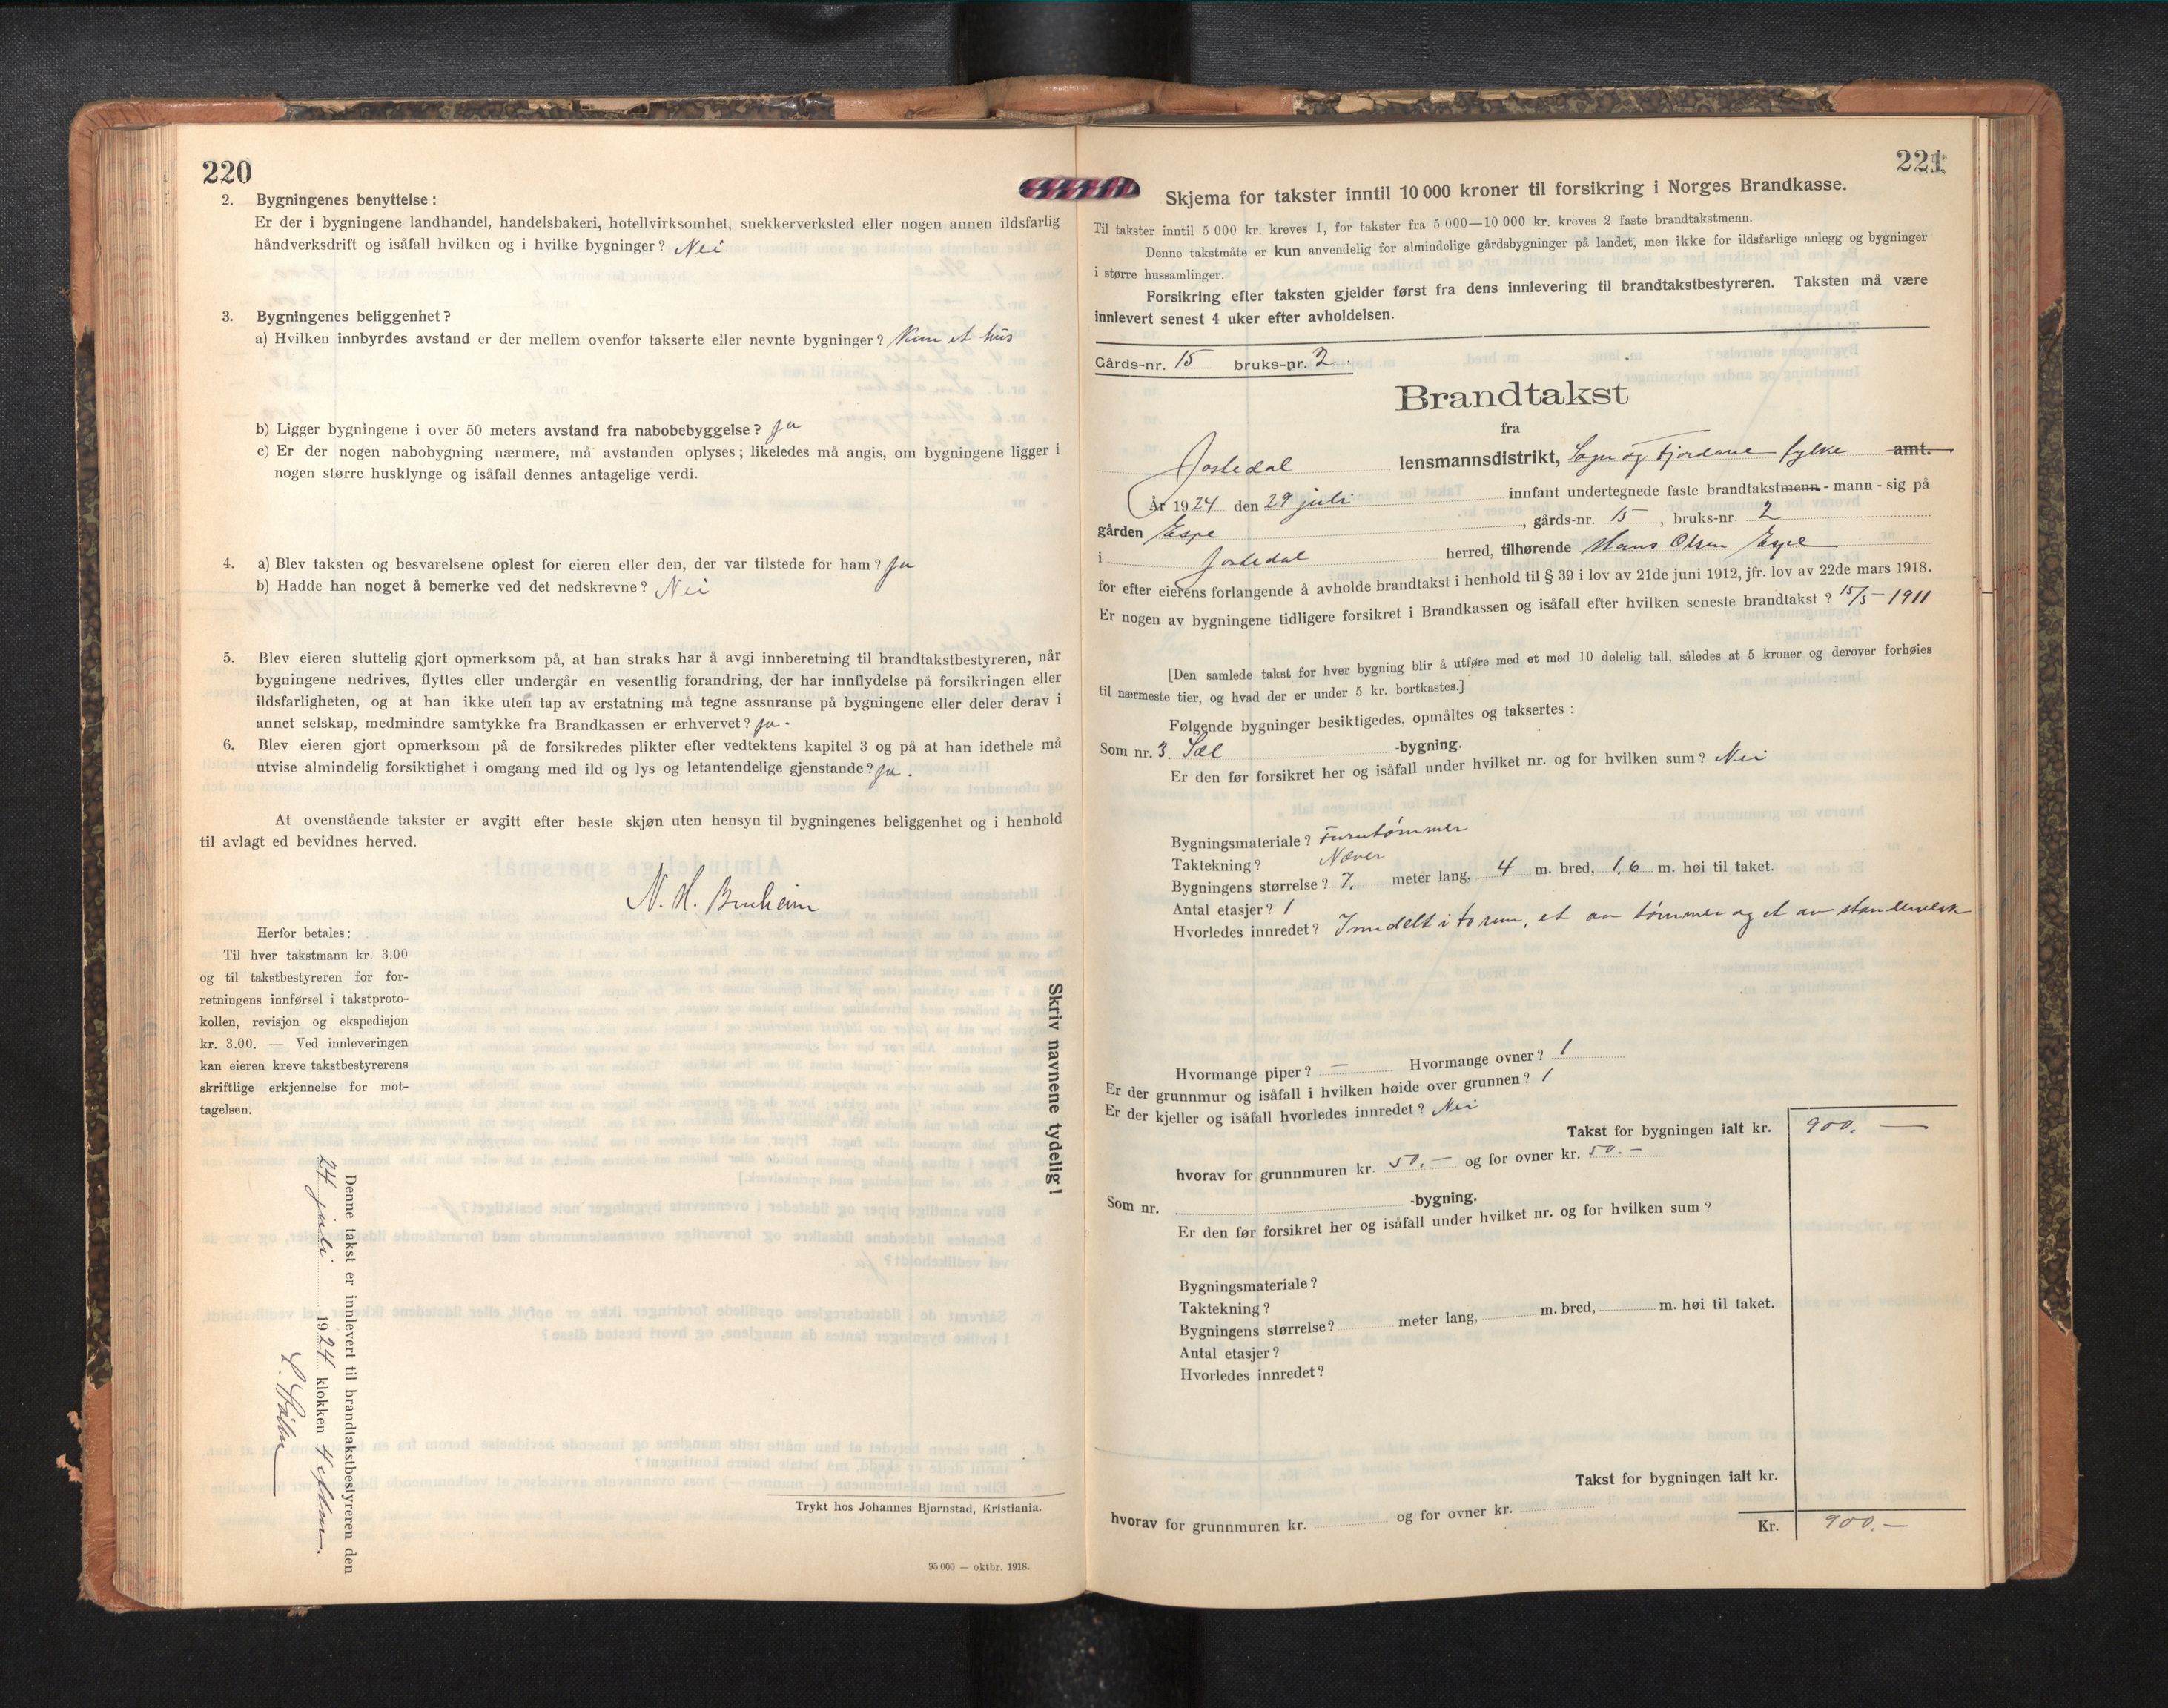 220
2. Bygningenes benyttelse:
Er der i bygningene landhandel, handelsbakeri, hotellvirksomhet, snekkerverksted eller nogen annen ildsfarlig
håndverksdrift og isåfall hvilken og i hvilke bygninger? Nei
3. Bygningenes beliggenhet?
a) Hvilken innbyrdes avstand er der mellem ovenfor takserte eller nevnte bygninger? Kun et hus
b) Ligger bygningene i over 50 meters avstand fra nabobebyggelse? Ja
c) Er der nogen nabobygning nærmere, må avstanden oplyses; likeledes må angis, om bygningene ligger i
nogen større husklynge og isåfall dennes antagelige verdi.
4. a) Blev taksten og besvarelsene oplest for eieren eller den, der var tilstede for ham? Ja
b) Hadde han noget å bemerke ved det nedskrevne? Nei
5. Blev eieren sluttelig gjort opmerksom på, at han straks har å avgi innberetning til brandtakstbestyreren, når
bygningene nedrives, flyttes eller undergår en vesentlig forandring, der har innflydelse på forsikringen eller
ildsfarligheten, og at han ikke uten tap av erstatning må tegne assuranse på bygningene eller deler derav i
annet selskap, medmindre samtykke fra Brandkassen er erhvervet? Ja.
6. Blev eieren gjort opmerksom på de forsikredes plikter efter vedtektens kapitel 3 og på at han idethele må
utvise almindelig forsiktighet i omgang med ild og lys og letantendelige gjenstande? Ja.
At ovenstående takster er avgitt efter beste skjøn uten hensyn til bygningenes beliggenhet og i henhold
til avlagt ed bevidnes herved.
N. H. Bruheim
Herfor betales:
Til hver takstmann kr. 3.00
og til takstbestyreren for for-
retningens innførsel i takstproto-
kollen, revisjon og ekspedisjon
kr. 3.00. — Ved innleveringen
kan eieren kreve takstbestyrerens
skriftlige erkjennelse for mot-
tagelsen.
Skriv navnene tydelig!
Denne takst er innlevert til brandtakstbestyreren den
24 juli 1924 klokken
Trykt hos Johannes Bjørnstad, Kristiania.
95 000 — oktbr. 1918.
221
Skjema for takster inntil 10 000 kroner til forsikring i Norges Brandkasse.
Til takster inntil 5 000 kr. kreves 1, for takster fra 5 000—10 000 kr. kreves 2 faste brandtakstmenn.
Denne takstmåte er kun anvendelig for almindelige gårdsbygninger på landet, men ikke for ildsfarlige anlegg og bygninger
i større hussamlinger.
Forsikring efter taksten gjelder først fra dens innlevering til brandtakstbestyreren. Taksten må være
innlevert senest 4 uker efter avholdelsen.
Gårds-nr. 15 bruks-nr. 2.
Brandtakst
fra
Jostedal lensmannsdistrikt, Sogn og Fjordane fylke amt.
År 1924 den 29 juli innfant undertegnede faste brandtakstmenn - mann - sig på
gården Espe, gårds-nr. 15, bruks-nr. 2
i Jostedal herred, tilhørende Hans Olsen Espe
for efter eierens forlangende å avholde brandtakst i henhold til § 39 i lov av 21de juni 1912, jfr. lov av 22de mars 1918.
Er nogen av bygningene tidligere forsikret i Brandkassen og isåfall efter hvilken seneste brandtakst? 15/5 1911
[Den samlede takst for hver bygning blir å utføre med et med 10 delelig tall, således at 5 kroner og derover forhøies
til nærmeste tier, og hvad der er under 5 kr. bortkastes.]
Følgende bygninger besiktigedes, opmåltes og taksertes:
Som nr. 3. Sæl -bygning.
Er den før forsikret her og isåfall under hvilket nr. og for hvilken sum? Nei
Bygningsmateriale? Furutømmer
Taktekning? Næver
Bygningens størrelse? 7. meter lang, 4 m. bred, 1,6 m. høi til taket.
Antal etasjer? 1
Hvorledes innredet? Inndelt i to rum, et av tømmer og et av stenderverk
Hvormange piper? — Hvormange ovner? 1
Er der grunnmur og isåfall i hvilken høide over grunnen? 1
Er der kjeller og isåfall hvorledes innredet? Nei
Takst for bygningen ialt kr. 900. —
hvorav for grunnmuren kr. 50. — og for ovner kr. 50. —
Som nr. -bygning.
Er den før forsikret her og isåfall under hvilket nr. og for hvilken sum?
Bygningsmateriale?
Taktekning?
Bygningens størrelse? meter lang, m. bred, m. høi til taket.
Antal etasjer?
Hvorledes innredet?
Takst for bygningen ialt kr.
hvorav for grunnmuren kr. og for ovner kr.
Kr. 900. —